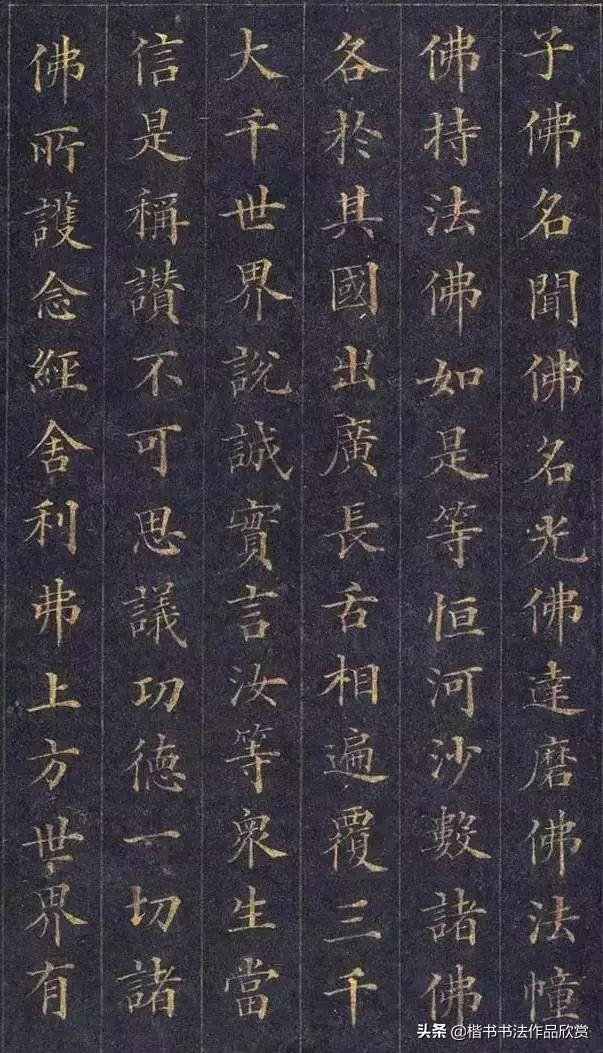 子佛名聞佛名光佛達磨佛法幢
佛持法佛如是等恒河沙數諸佛
各於其國出廣長舌相遍覆三千
大千世界說誠實言汝等衆生當
信是稱讃不可思議功德一切諸
佛所護念經舍利弗上方世界有
头条 @楷书书法作品欣赏